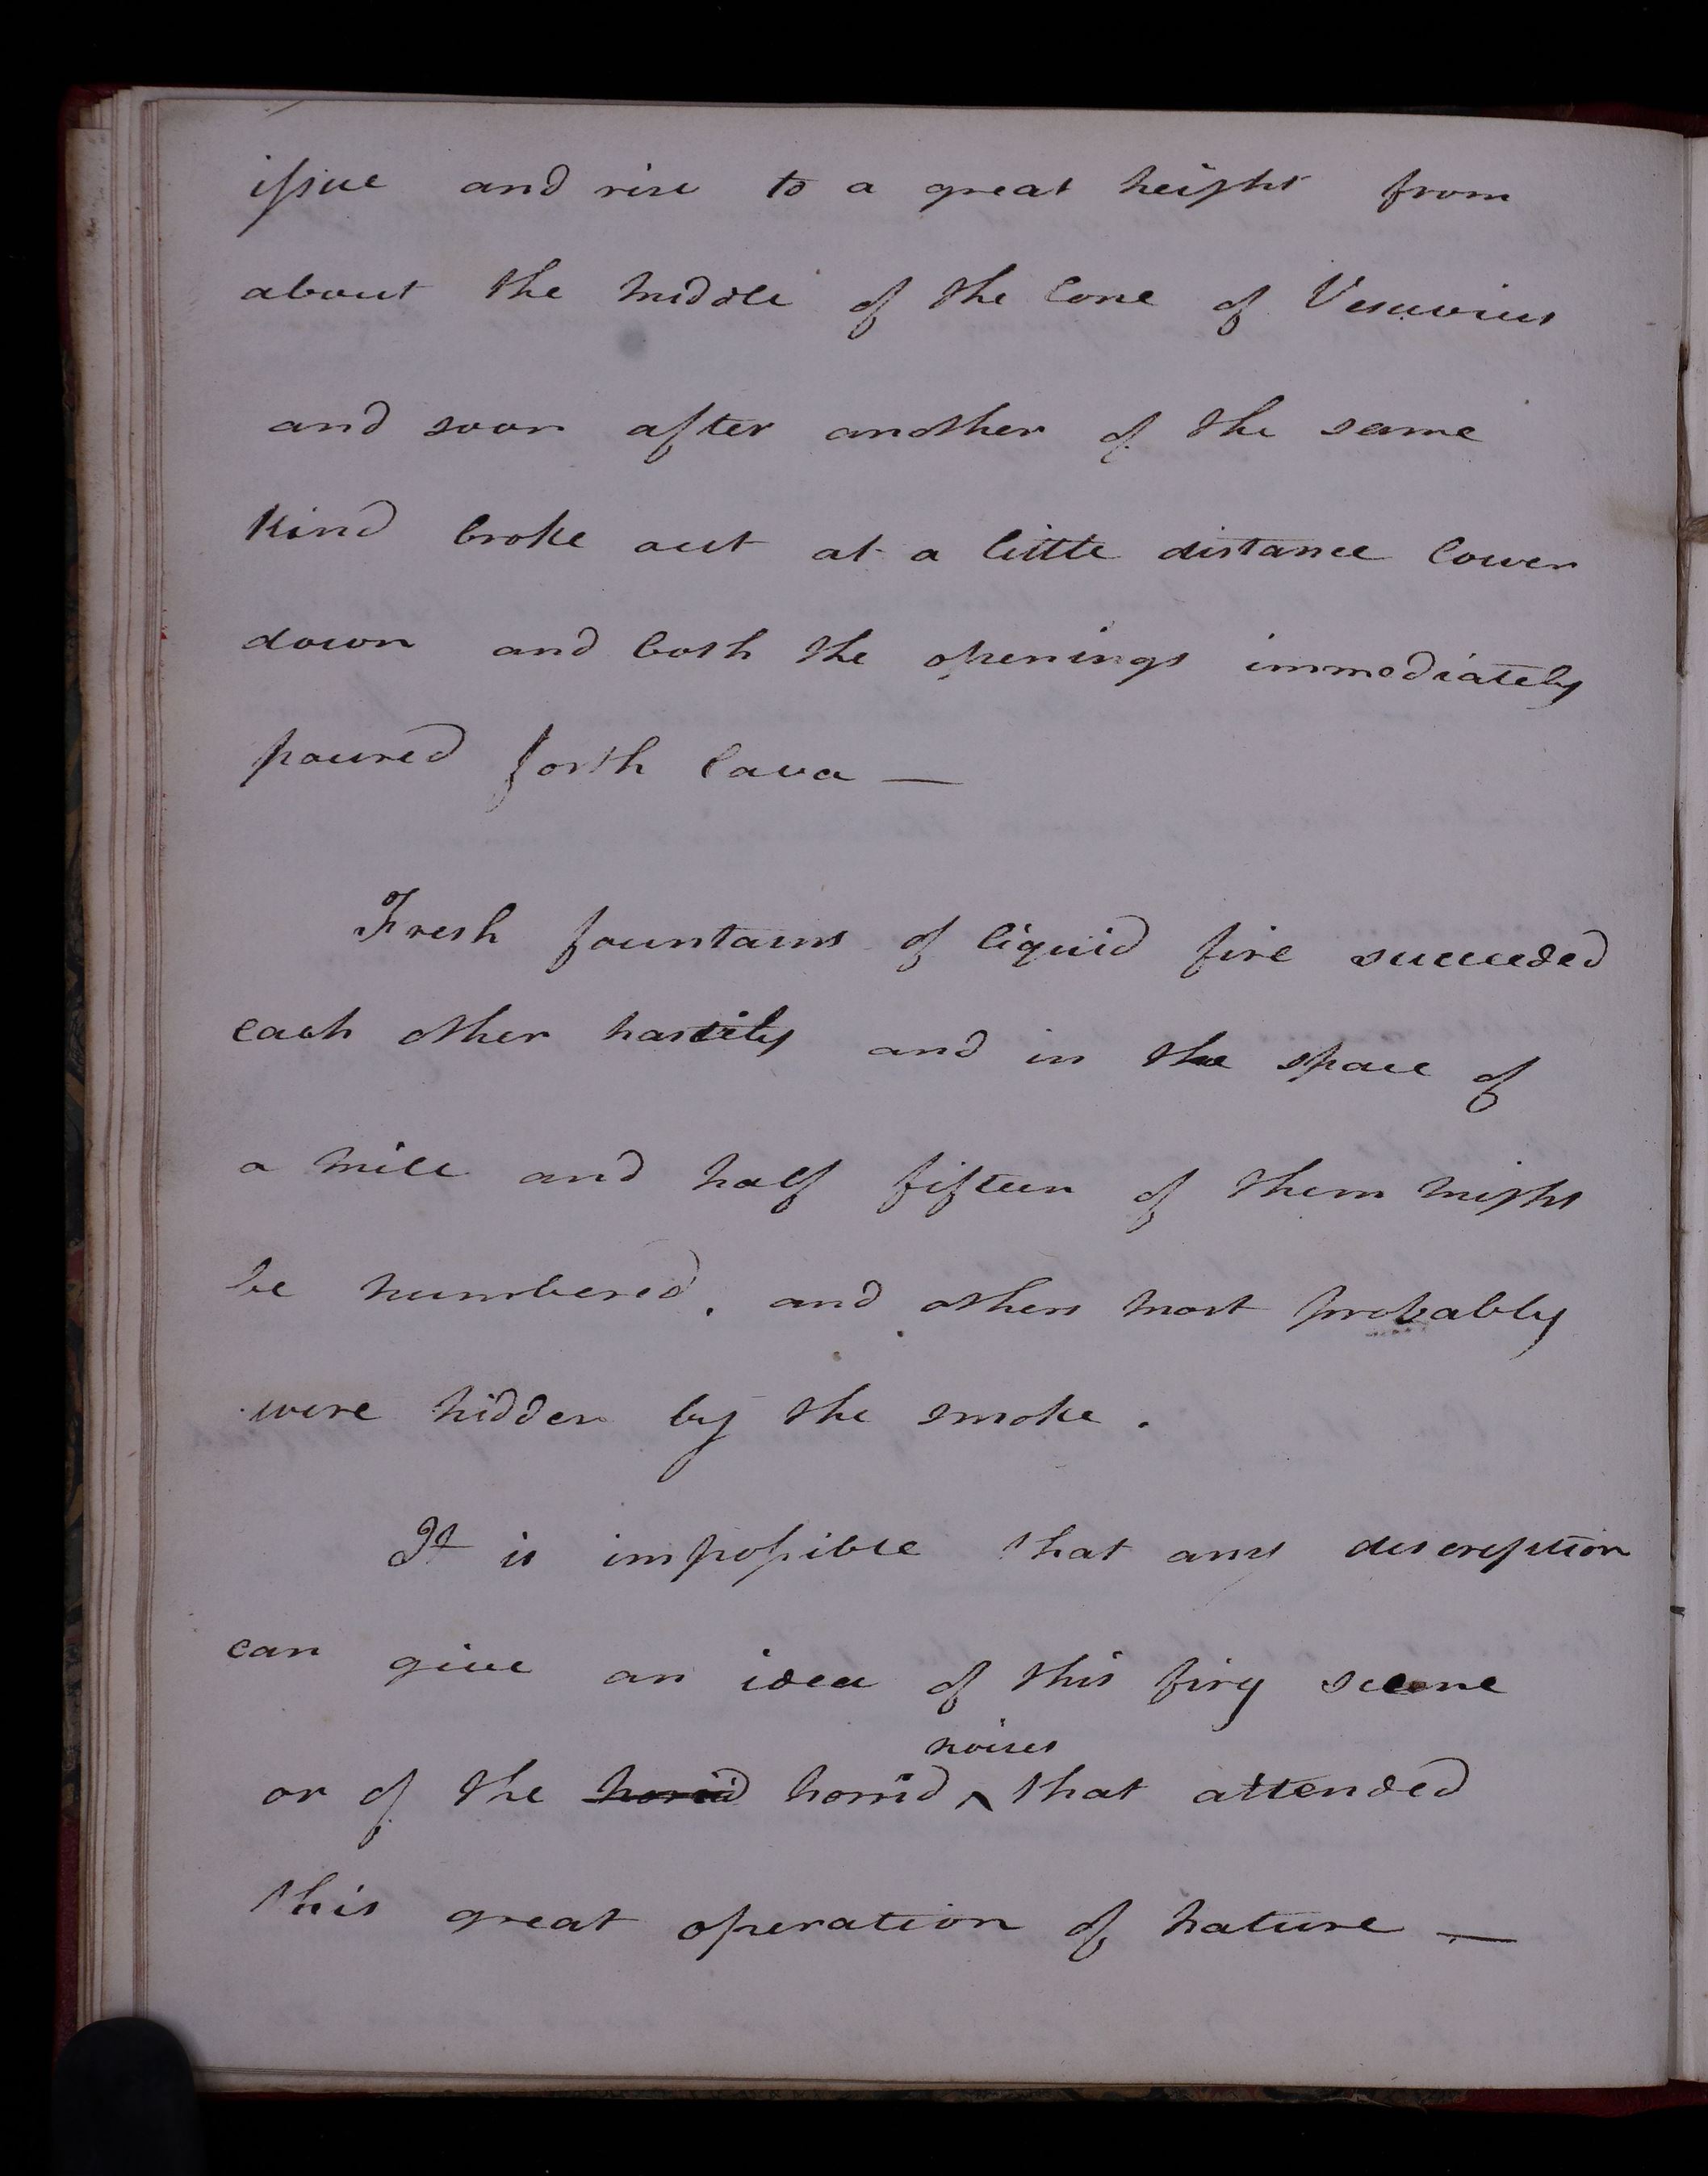 issue and rise to a great height from
about the middle of the Cone of Vesuvius
and soon after another of the same
kind broke out at a little distance lower
down and both the openings immediately
poured forth lava —
Fresh fountains of liquid fire succeeded
each other hastily and in the space of
a mile and half fifteen of them might
be numbered, and others most probably
were hidden by the smoke.
It is impossible that any description
can give an idea of this firy scene
noises
or of the horrid horrid ‸ that attended
this great operation of nature —